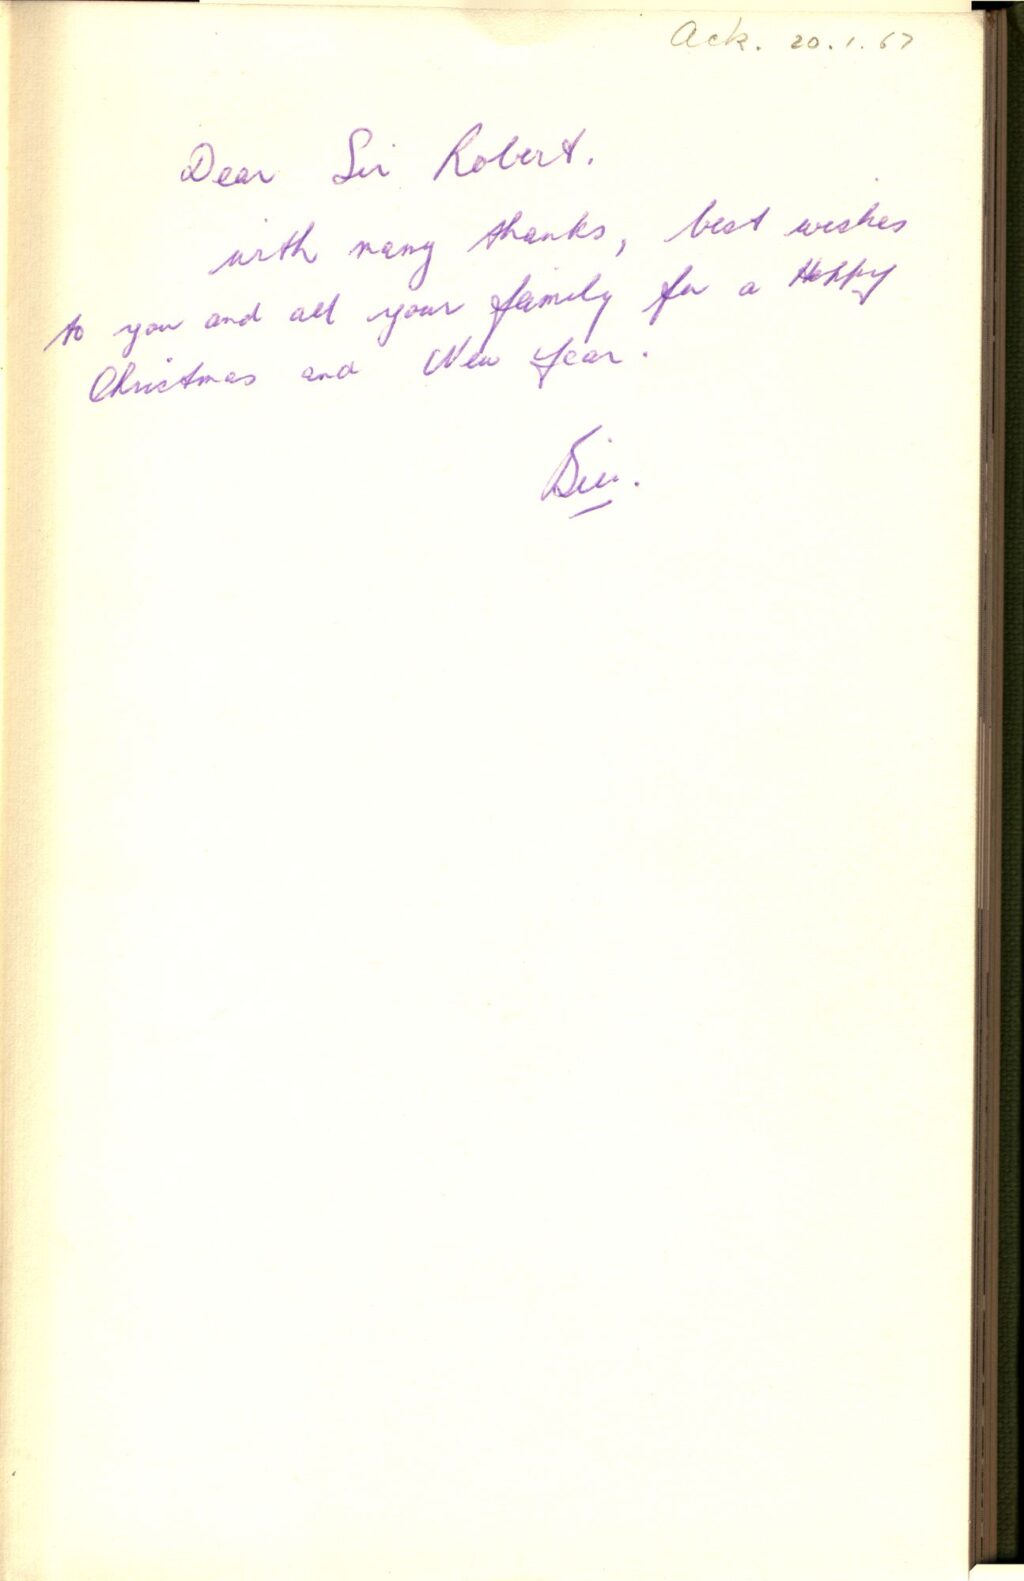 Ack. 20.1.67
Dear Sir Robert.
with many thanks, best wishes
to you and all your family for a Happy
Christmas and New Year.
Bill.